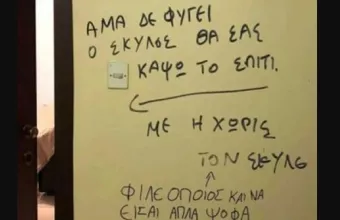 ΑΜΑ ΔΕ ΦΥΓΕΙ
Ο ΣΚΥΛΟΣ ΘΑ ΣΑΣ
ΚΑΨΩ ΤΟ ΣΠΙΤΙ.
ΜΕ Η ΧΩΡΙΣ
ΤΟΝ ΣΚΥΛΟ
ΦΙΛΕ ΟΠΟΙΟΣ ΚΑΙ ΝΑ
ΕΙΣΑΙ ΑΠΛΑ ΨΟΦΑ